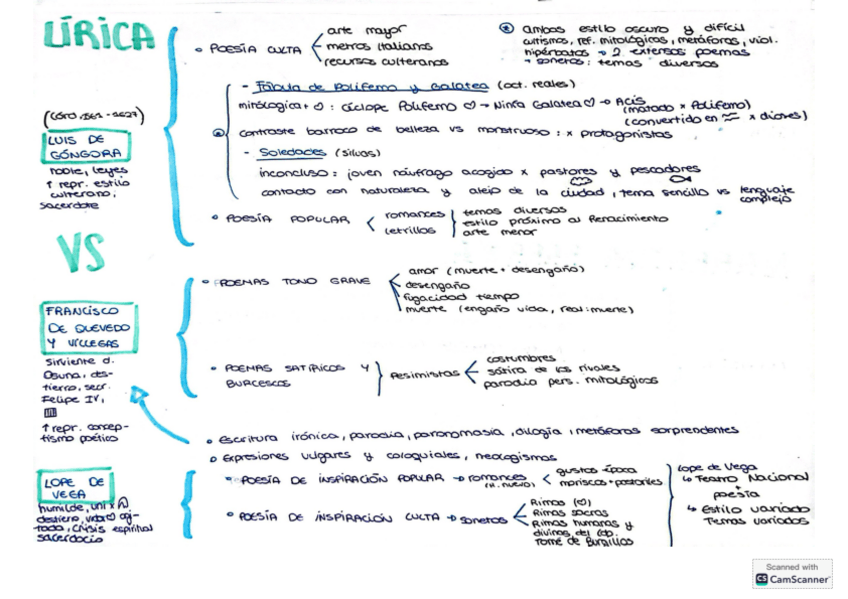 LÍRICA
• POESÍA CULTA
arte mayor
metros italianos
recursos culteranos
ambos estilo oscuro y difícil
cultismos, ref. mitológicas, metáforas, viol.
hipérbatos → 2 extensos poemas
+ sonetos: temas diversos
(Córd. 1561 - 1627)
LUIS DE
GÓNGORA
noble, leyes
↑ repr. estilo
culterano,
sacerdote
- Fábula de Polifemo y Galatea (oct. reales)
mitológica + ♡ : cíclope Polifemo ♡ → Ninfa Galatea ♡ → Acis
(matado x Polifemo)
(convertido en ≈ x dioses)
contraste barroco de belleza vs monstruoso : x protagonistas
- Soledades (silvas)
inconcluso : joven náufrago acogido x pastores y pescadores
contacto con naturaleza y alejo de la ciudad, tema sencillo vs lenguaje
complejo
• POESÍA POPULAR
romances
letrillas
temas diversos
estilo próximo al Renacimiento
arte menor
VS
FRANCISCO
DE QUEVEDO
Y VILLEGAS
sirviente d.
Osuna, des-
tierro, secr.
Felipe IV,
↑ repr. concep-
tismo poético
• POEMAS TONO GRAVE
amor (muerte + desengaño)
desengaño
fugacidad tiempo
muerte (engaño vida, real: muerte)
• POEMAS SATÍRICOS Y
BURLESCOS
Pesimistas
costumbres
sátira de los rivales
parodia pers. mitológicos
• Escritura irónica, parodia, paronomasia, dilogía, metáforas sorprendentes
• Expresiones vulgares y coloquiales, neologismos
LOPE DE
VEGA
humilde, uni x
destierro, vida ♡ agi-
tada, crisis espiritual
sacerdocio
• POESÍA DE INSPIRACIÓN POPULAR → romances
(R. nuevo)
gustos época
moriscos + pastoriles
• POESÍA DE INSPIRACIÓN CULTA → sonetos
Rimas (♡)
Rimas sacras
Rimas humanas y
divinas del Ldo.
Tomé de Burguillos
Lope de Vega
↳ Teatro Nacional
+
poesía
↳ Estilo variado
Temas variados
Scanned with
CS CamScanner